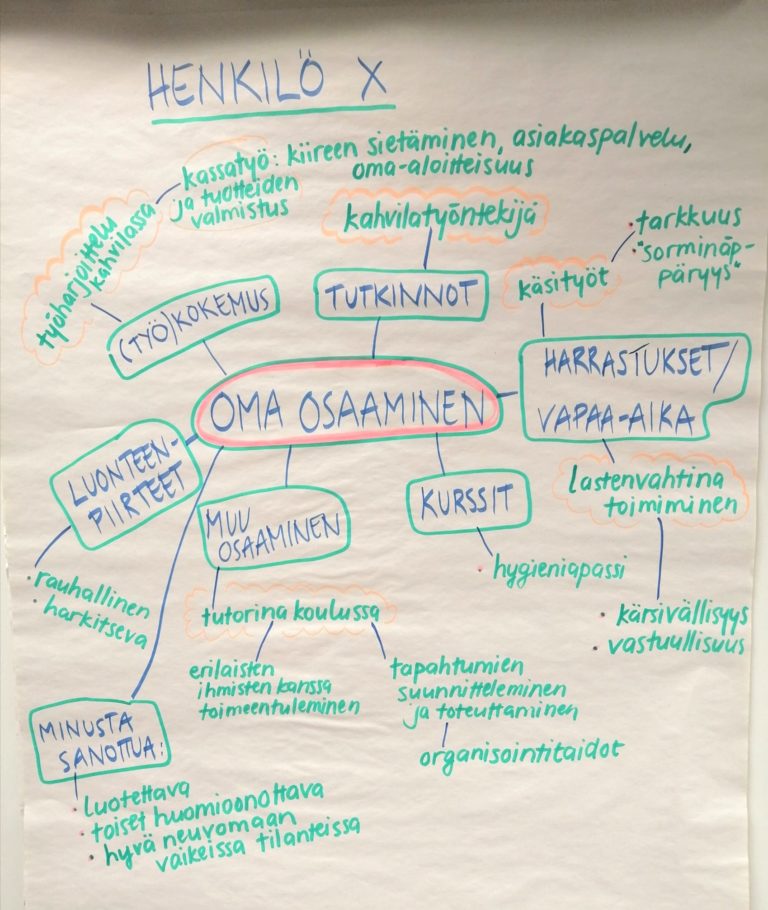 HENKILÖ X
kassatyö: kiireen sietäminen, asiakaspalvelu,
ja tuotteiden oma-aloitteisuus
valmistus
työharjoittelu
kahvilassa
(TYÖ)KOKEMUS
kahvilatyöntekijä
TUTKINNOT
käsityöt
• tarkkuus
• "sorminäp-
päryys"
HARRASTUKSET/
VAPAA-AIKA
OMA OSAAMINEN
LUONTEEN-
PIIRTEET
• rauhallinen
• harkitseva
MUU
OSAAMINEN
tutorina koulussa
erilaisten
ihmisten kanssa
toimeentuleminen
tapahtumien
suunnitteleminen
ja toteuttaminen
organisointitaidot
KURSSIT
• hygieniapassi
lastenvahtina
toimiminen
• kärsivällisyys
• vastuullisuus
MINUSTA
SANOTTUA:
• luotettava
• toiset huomioonottava
• hyvä neuvomaan
vaikeissa tilanteissa